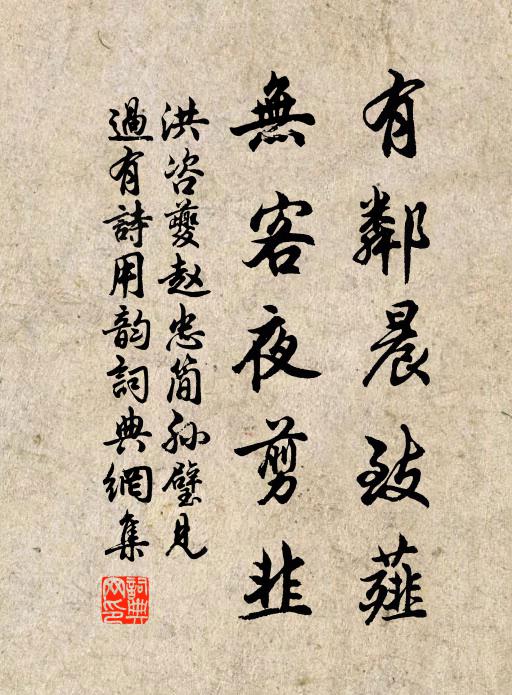 有鄰晨致薤
無客夜剪韭
洪咨夔赵忠简孙璧見
過有詩用韵詞典網集
詞典网印